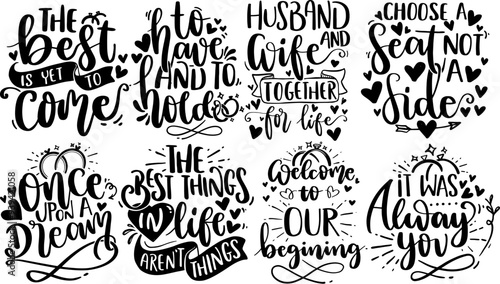 THE
best
IS YET TO
Come
to
have
AND TO
hold
HUSBAND
AND
Wife
TOGETHER
for life
CHOOSE A
Seat NOT
A
Side
Once
UPON A
Dream
THE
BEST THINGS
IN life
AREN'T THINGS
Welcome
to
OUR
begining
IT WAS
Alway
YOU